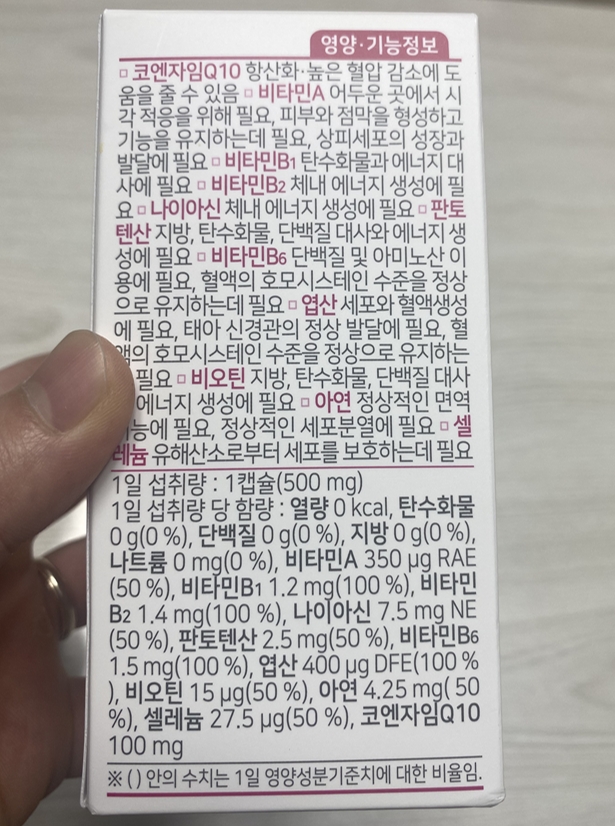 영양·기능정보
▫ 코엔자임Q10 항산화·높은 혈압 감소에 도
움을 줄 수 있음 ▫ 비타민A 어두운 곳에서 시
각 적응을 위해 필요, 피부와 점막을 형성하고
기능을 유지하는데 필요, 상피세포의 성장과
발달에 필요 ▫ 비타민B1 탄수화물과 에너지 대
사에 필요 ▫ 비타민B2 체내 에너지 생성에 필
요 ▫ 나이아신 체내 에너지 생성에 필요 ▫ 판토
텐산 지방, 탄수화물, 단백질 대사와 에너지 생
성에 필요 ▫ 비타민B6 단백질 및 아미노산 이
용에 필요, 혈액의 호모시스테인 수준을 정상
으로 유지하는데 필요 ▫ 엽산 세포와 혈액생성
에 필요, 태아 신경관의 정상 발달에 필요, 혈
액의 호모시스테인 수준을 정상으로 유지하는
필요 ▫ 비오틴 지방, 탄수화물, 단백질 대사
에너지 생성에 필요 ▫ 아연 정상적인 면역
기능에 필요, 정상적인 세포분열에 필요 ▫ 셀
레늄 유해산소로부터 세포를 보호하는데 필요
1일 섭취량 : 1캡슐(500 mg)
1일 섭취량 당 함량 : 열량 0 kcal, 탄수화물
0 g(0 %), 단백질 0 g(0 %), 지방 0 g(0 %),
나트륨 0 mg(0 %), 비타민A 350 µg RAE
(50 %), 비타민B1 1.2 mg(100 %), 비타민
B2 1.4 mg(100 %), 나이아신 7.5 mg NE
(50 %), 판토텐산 2.5 mg(50 %), 비타민B6
1.5 mg(100 %), 엽산 400 µg DFE(100 %
), 비오틴 15 µg(50 %), 아연 4.25 mg( 50
%), 셀레늄 27.5 µg(50 %), 코엔자임Q10
100 mg
※ ( ) 안의 수치는 1일 영양성분기준치에 대한 비율임.